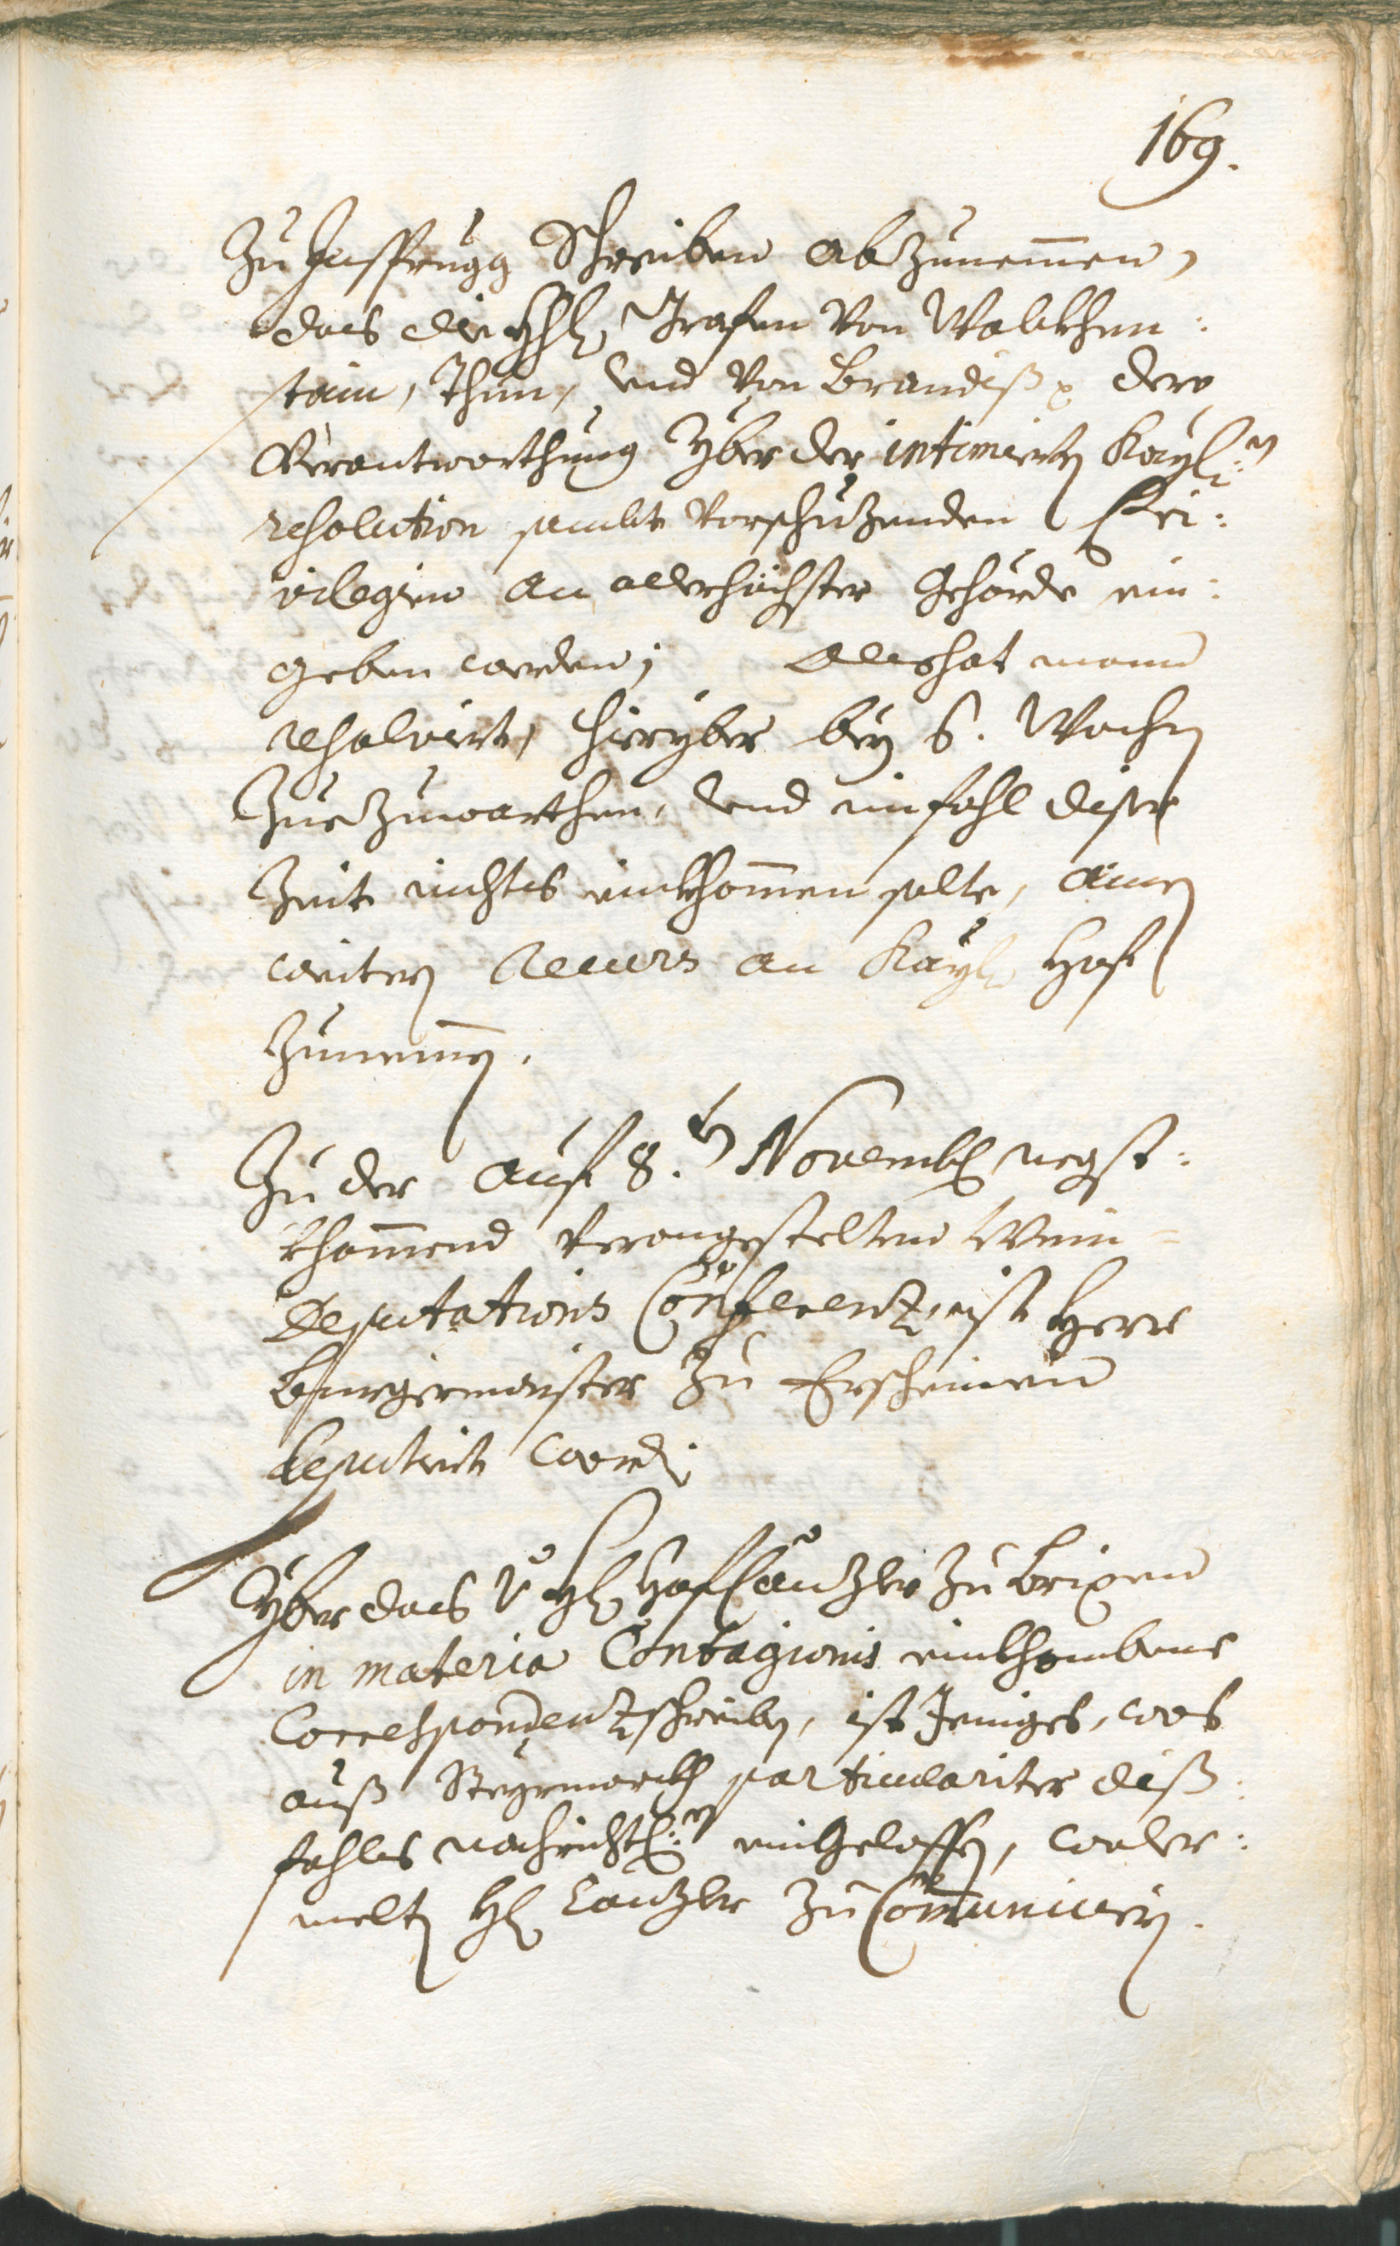 169.
Zu Jnsprugg Schreiben abzunemmen,
das die Hhl. Grafen von Wolkhen:
stain, Thun, und von Brandiß dero
Verantworthung yber der intimierten Kayl:n
resolution sambt vorschuzenden Pri:
vilegien an allerhöchster Gehörde ein:
geben werden; Alls hat mann
resolviert, hieryber bey 6. Wochen
Zuezuwarthen, und imfahl diser
Zeit nichts einkhommen solte, ainen
weitern Recurs an Kayl. Hoff
Zunemmen.
Zu der auf 8.ten Novemb. negst:
khommend veranngestelten Wein=
Deputations Conferenz, ist Herr
Burgermaister Zu Erscheinen
deputiert word.
Yber das v. Hl. HofCanzler zu Brixen
in materia Contagionis einkhombene
Correspondentzschreiben, ist Jeniges, was
auß Steyrmarckh particulariter diß:
fahls nachrichtl:n eingeloffen, woler:
melten Hl. Canzler zu Communicieren.